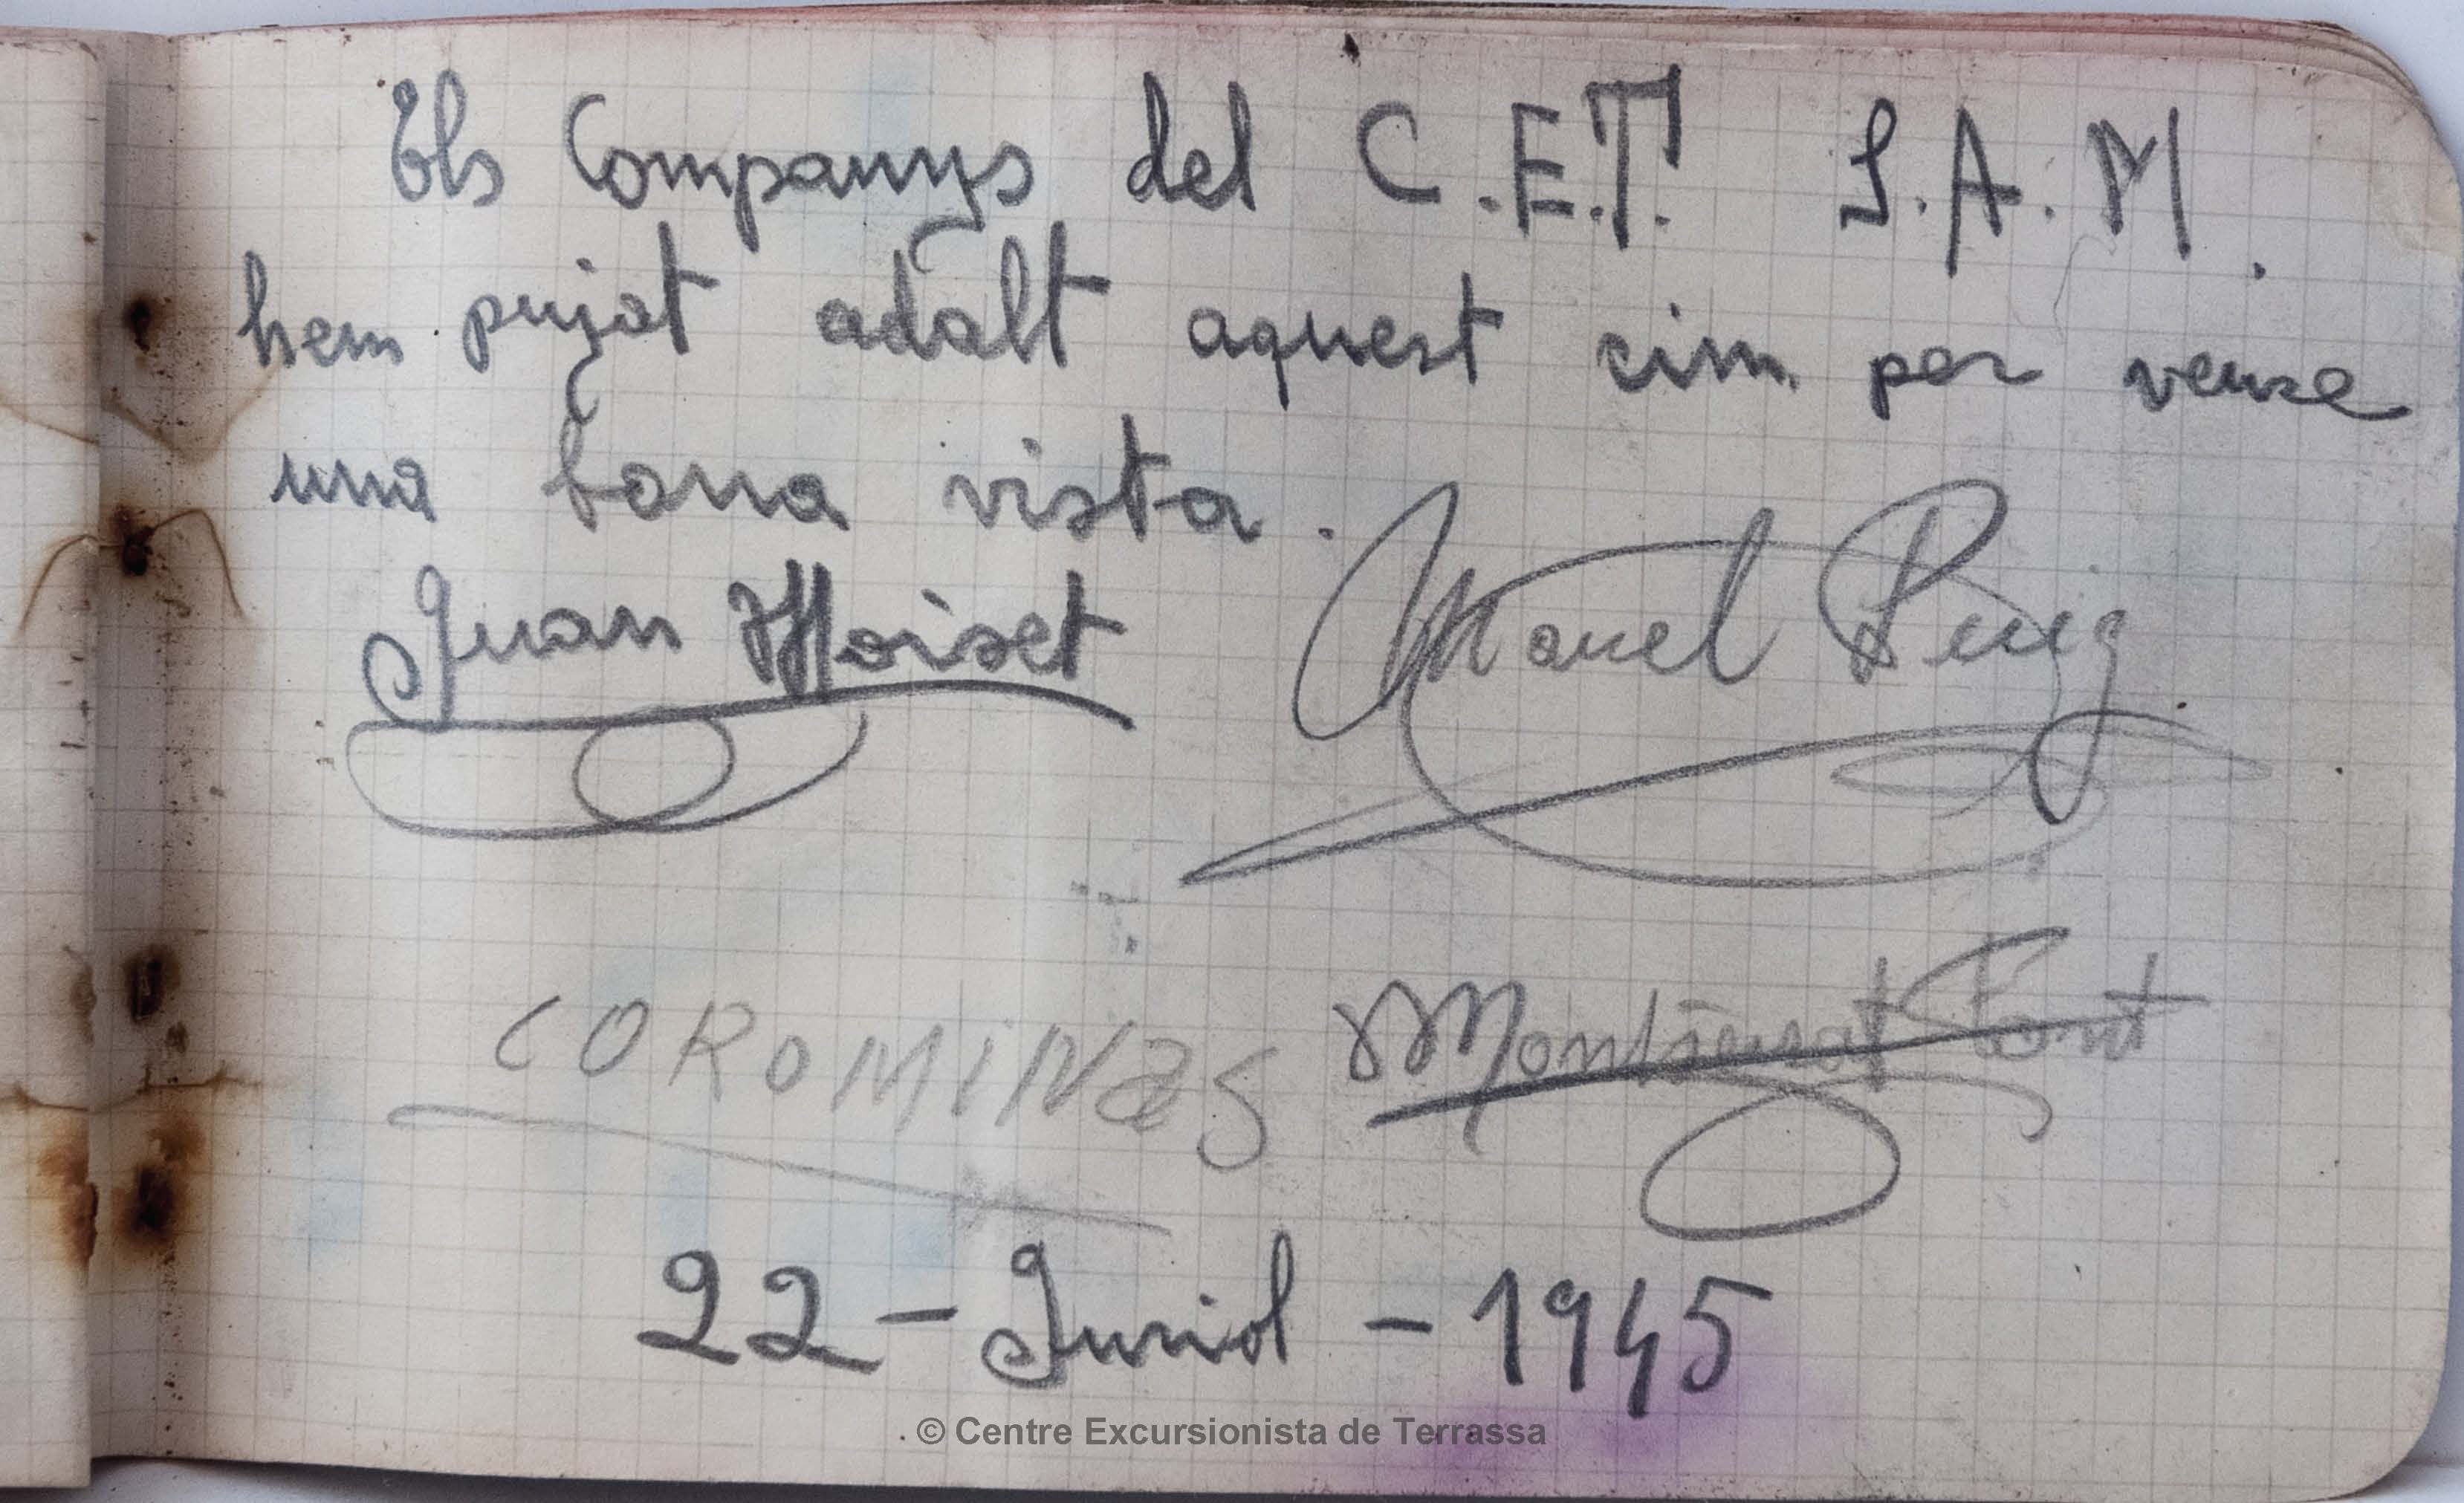 Els Companys del C.E.T. S.A.M.
hem pujat adalt aquest cim per veure
una bona vista.
Juan Moiset Manel Puig
COROMINaS Montserrat Font
22 - Juriol - 1945
© Centre Excursionista de Terrassa